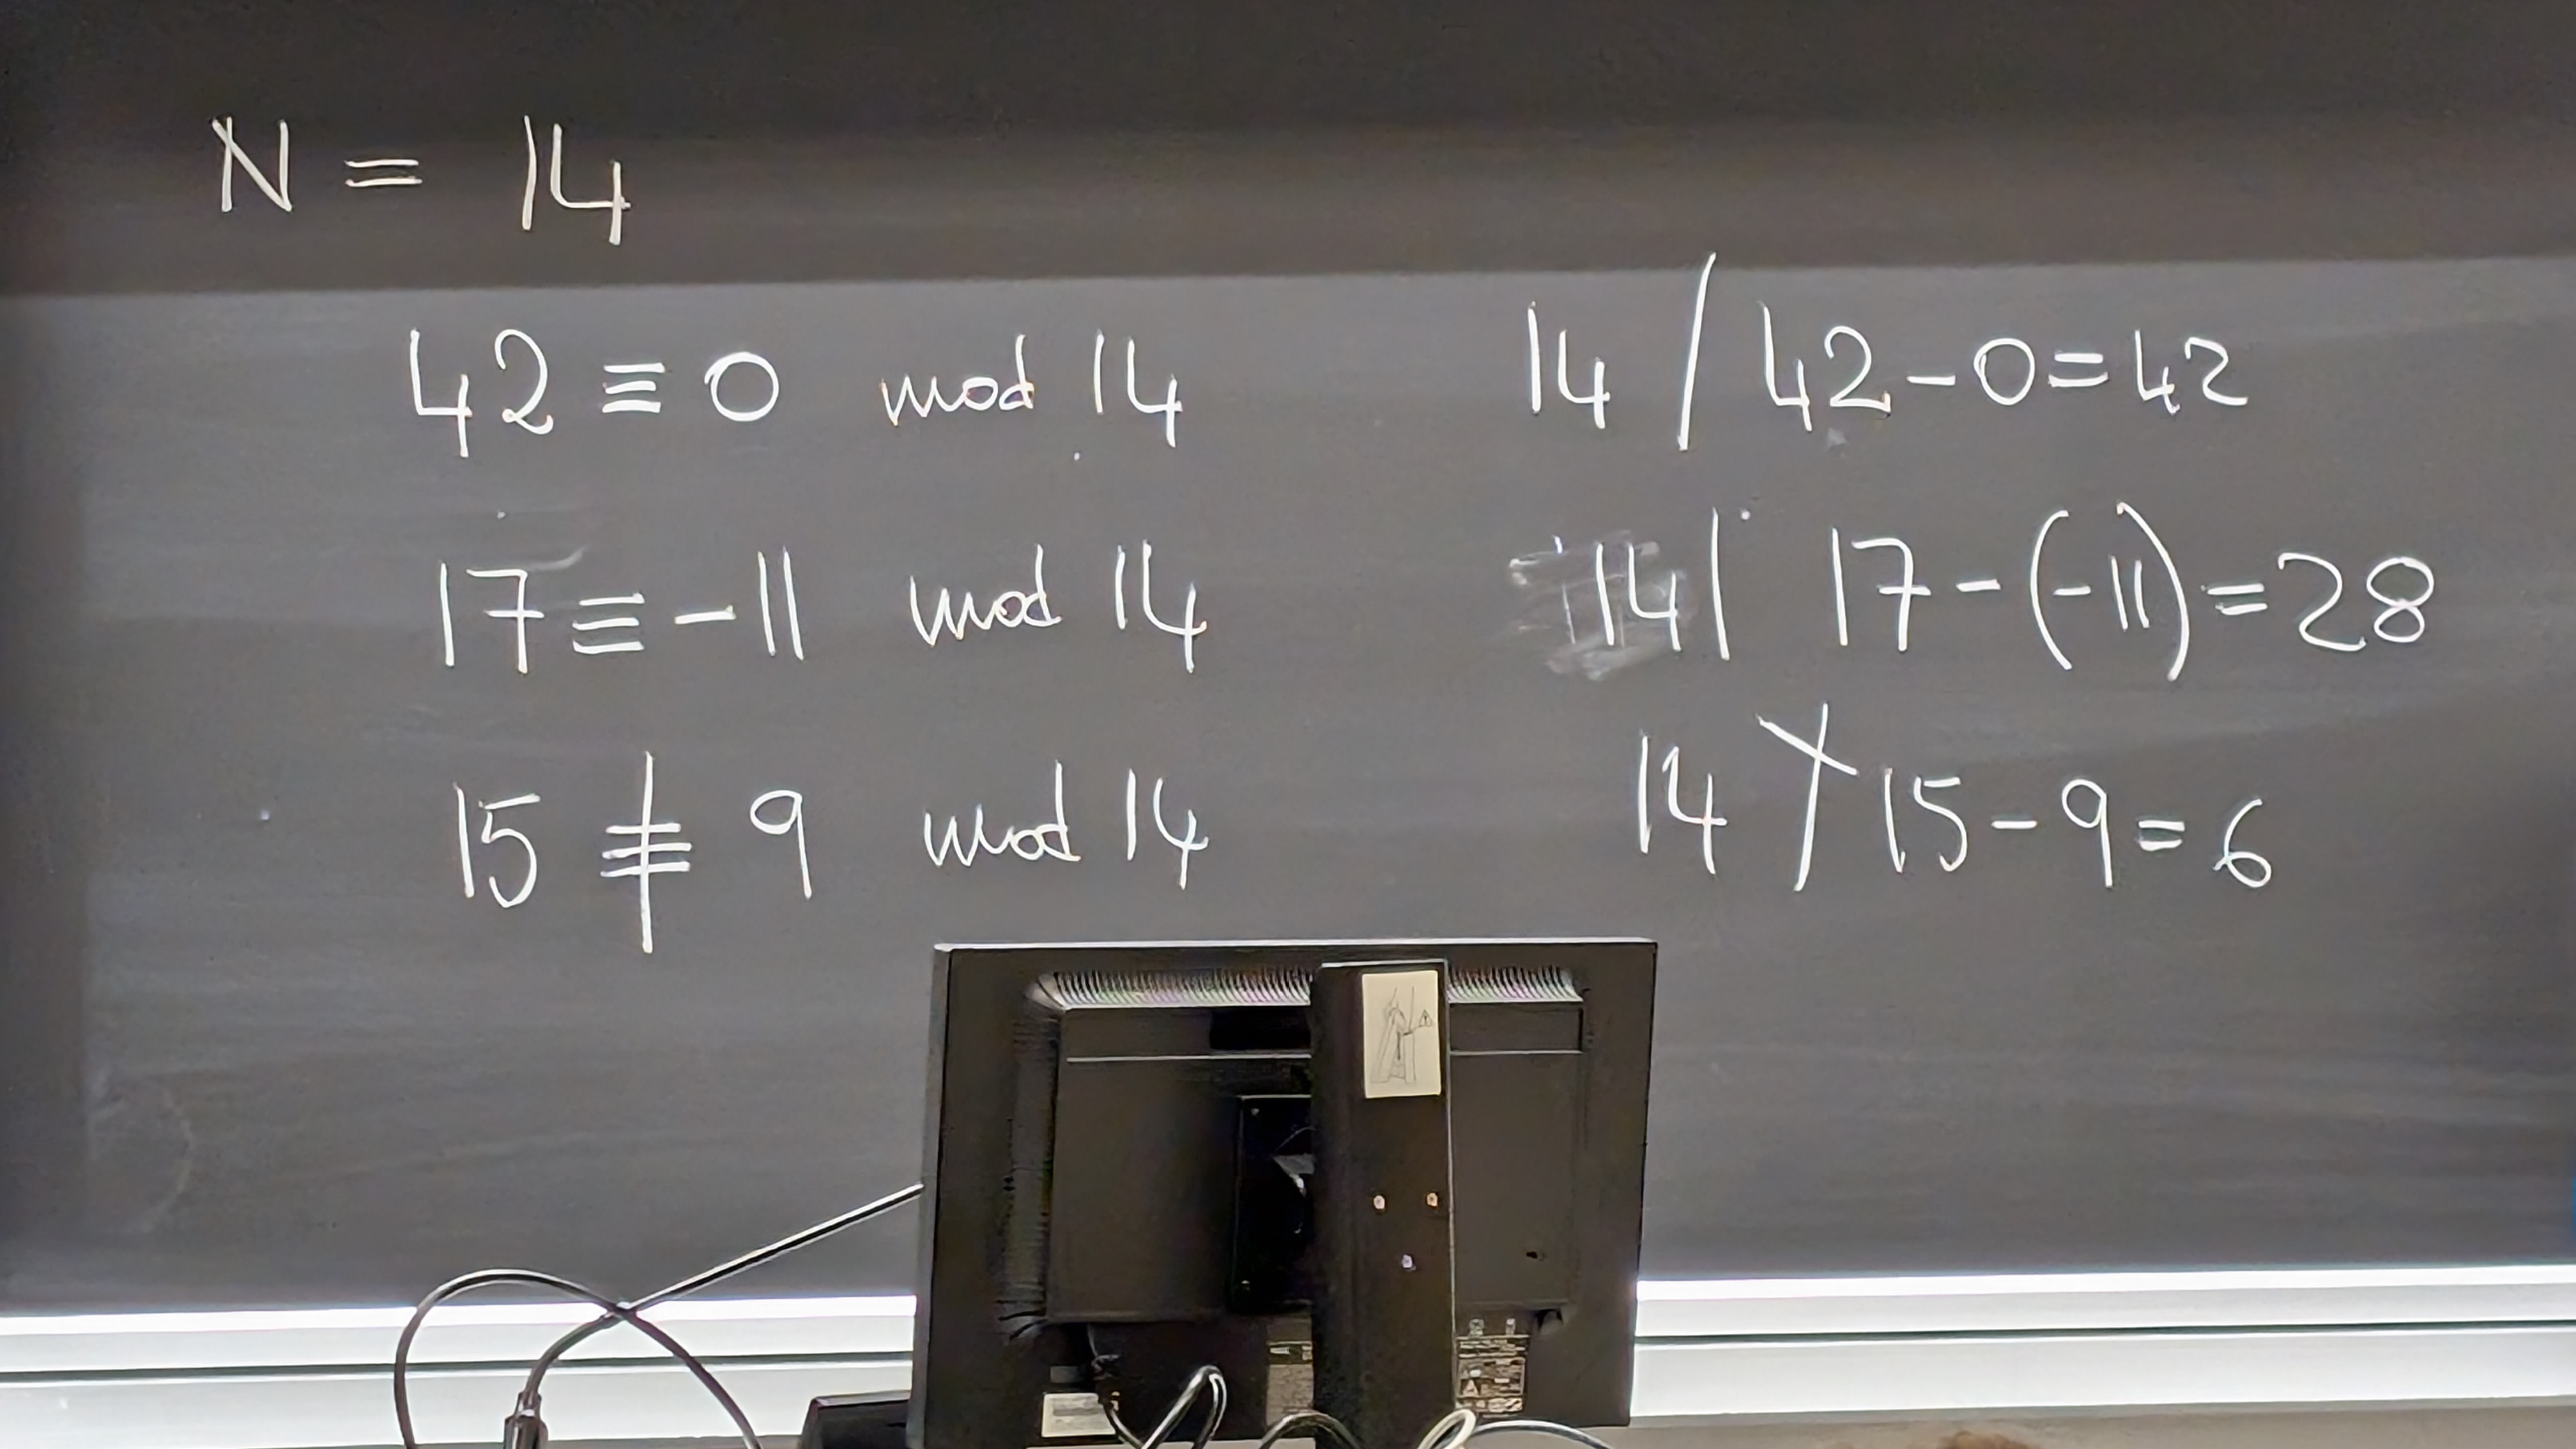 N = 14
42 ≡ 0 mod 14 14 / 42 - 0 = 42
17 ≡ -11 mod 14 14 | 17 - (-11) = 28
15 ≢ 9 mod 14 14 ∤ 15 - 9 = 6